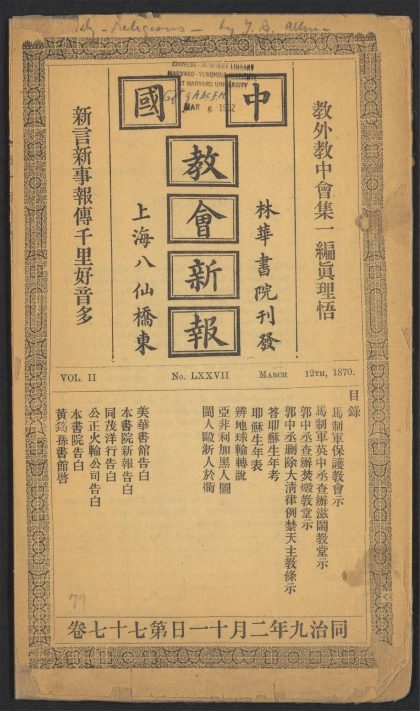 CHINESE-JAPANESE LIBRARY
HARVARD-YENCHING INSTITUTE
AT HARVARD UNIVERSITY
MAR 6 1932
中國
教會新報
教外教中會集一編真理悟
林華書院刊發
上海八仙橋東
新言新事報傳千里好音多
VOL. II No. LXXVII MARCH 12TH, 1870.
目錄
馬制軍保護教會示
馬制軍英中丞查辦滋鬧教堂示
郭中丞查辦焚燬教堂示
郭中丞刪除大清律例禁天主教條示
答耶穌生年考
耶穌生年表
辨地球輪轉說
亞非利加黑人圖
閩人毆浙人於衢
美華書館告白
本書院新報告白
同茂洋行告白
公正火輪公司告白
本書院告白
黃筠孫書館啓
同治九年二月十一日第七十七卷
77